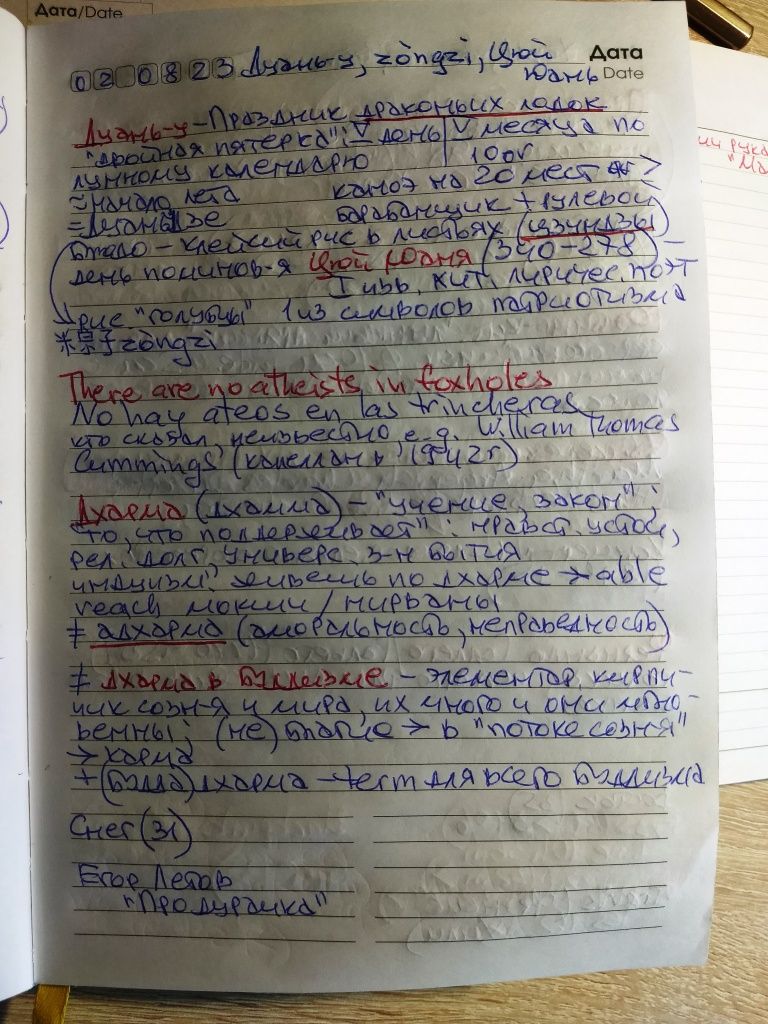 Дата/Date
020823 Дуань-у, zòngzi, Цюй Юань
Дата
Date
Дуань-у - Праздник драконьих лодок
"двойная пятерка": V день V месяца по
лунному календарю
≈ начало лета
каноэ на 20 мест
= Дуаньцзе
барабанщик + рулевой
блюдо - клейкий рис в листьях (цзунцзы)
день поминов-я Цюй Юаня (340-278) -
I изв. кит. лиричес. поэт
рис "голубцы" 1 из символов патриотизма
zòngzi
There are no atheists in foxholes
No hay ateos en las trincheras
кто сказал, неизвестно, e.g. William Thomas
Cummings (капеллан в 1942г)
Дхарма (дхамма) - "учение, закон";
"то, что поддерживает": нравст. устои,
рел. долг, универс. з-н бытия
индуизм: живешь по дхарме → able
reach мокши / нирваны
≠ адхарма (аморальность, неправедность)
≠ Дхарма в буддизме - элементар. кирпи-
чик созн-я и мира, их много и они мгно-
венны; (не)благие → в "потоке созн-я"
→ карма
+ (Будда)дхарма - термин для всего буддизма
Снег (31)
Егор Летов
"Про дурачка"